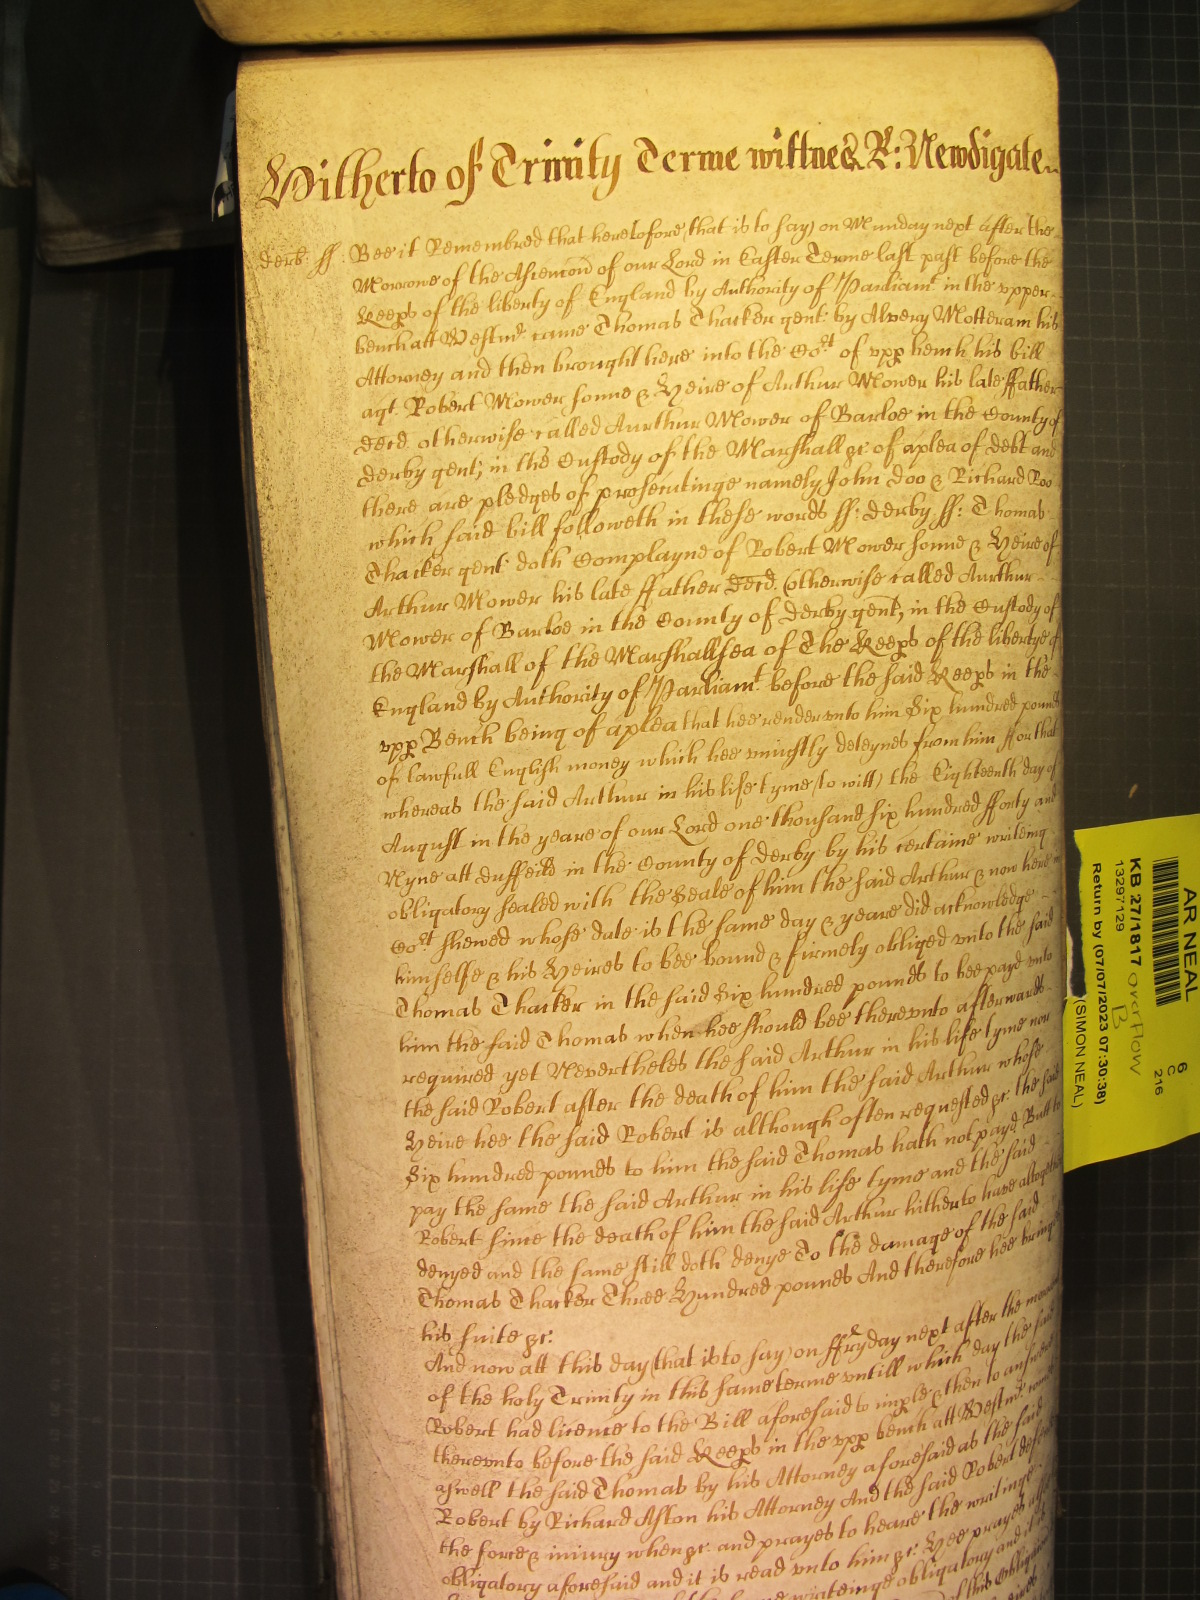 Hitherto of Trinity Terme wittnes R: Newdigate
derb: ff: Bee it Remembred that heretofore (that is to say) on Munday next after the
Morrowe of the Ascencon of our Lord in Easter Terme last past before the
Keeps of the liberty of England by Authority of Parliamt. in the vpper
bench att Westmr. came Thomas Thacker gent: by Alvery Motteram his
Attorney and then brought here into the Cort of vpp bench his bill
agt. Robert Mower sonne & Heire of Arthur Mower his late ffather
decd. otherwise called Aurthur Mower of Barloe in the County of
derby gent; in the Custody of the Marshall &c: of a plea of debt and
there are pledges of prosecutinge namely John Doo & Richard Roo
which said bill followeth in these words ff: derby ff: Thomas
Thacker gent: doth Complayne of Robert Mower sonne & Heire of
Arthur Mower his late ffather decd. (otherwise called Aurthur
Mower of Barloe in the County of derby gent; in the Custody of
the Marshall of the Marshallsea of The Keeps of the libertye of
England by Authority of Parliamt. before the said Keeps in the
vpp Bench being of a plea that hee render vnto him Six hundred pounds
of lawfull English money which hee vniustly deteynes from him ffor that
whereas the said Arthur in his life tyme (to witt) the Eighteenth day of
August in the yeare of our Lord one thousand six hundred fforty and
Nyne att duffeild in the County of derby by his certaine writeing
obligatory sealed with the Seale of him the said Arthur & now here in
Cort shewed whose date is the same day & yeare did acknowledge
himselfe & his Heires to bee bound & firmely obliged vnto the said
Thomas Thacker in the said Six hundred pounds to bee payd vnto
him the said Thomas when hee should bee therevnto afterwards
required yet Nevertheles the said Arthur in his life tyme nor
the said Robert after the death of him the said Arthur whose
Heire hee the said Robert is although often requested &c: the said
Six hundred pounds to him the said Thomas hath not payd Butt to
pay the same the said Arthur in his life tyme and the said
Robert since the death of him the said Arthur hitherto have altogether
denyed and the same still doth denye To the damage of the said
Thomas Thacker Three Hundred pounds And therefore hee bringes
his suite &c:
And now att this day (that is to say) on ffryday next after the morrow
of the holy Trinity in this same terme vntill which day the said
Robert had licence to the Bill aforesaid to imple & then to answere
therevnto before the said Keeps in the vpp bench att Westmr. come
aswell the said Thomas by his Attorney aforesaid as the said
Robert by Richard Aston his Attorney And the said Robert defends
the force & iniury when &c: and prayes to heare the writinge
obligatory aforesaid and it is read vnto him &c: Hee prayes
writeinge obligatory and it is
AR NEAL
KB 27/1817 overflow
13297129
B
Return by (07/07/2023 07:30:38)
(SIMON NEAL)
6
C
216